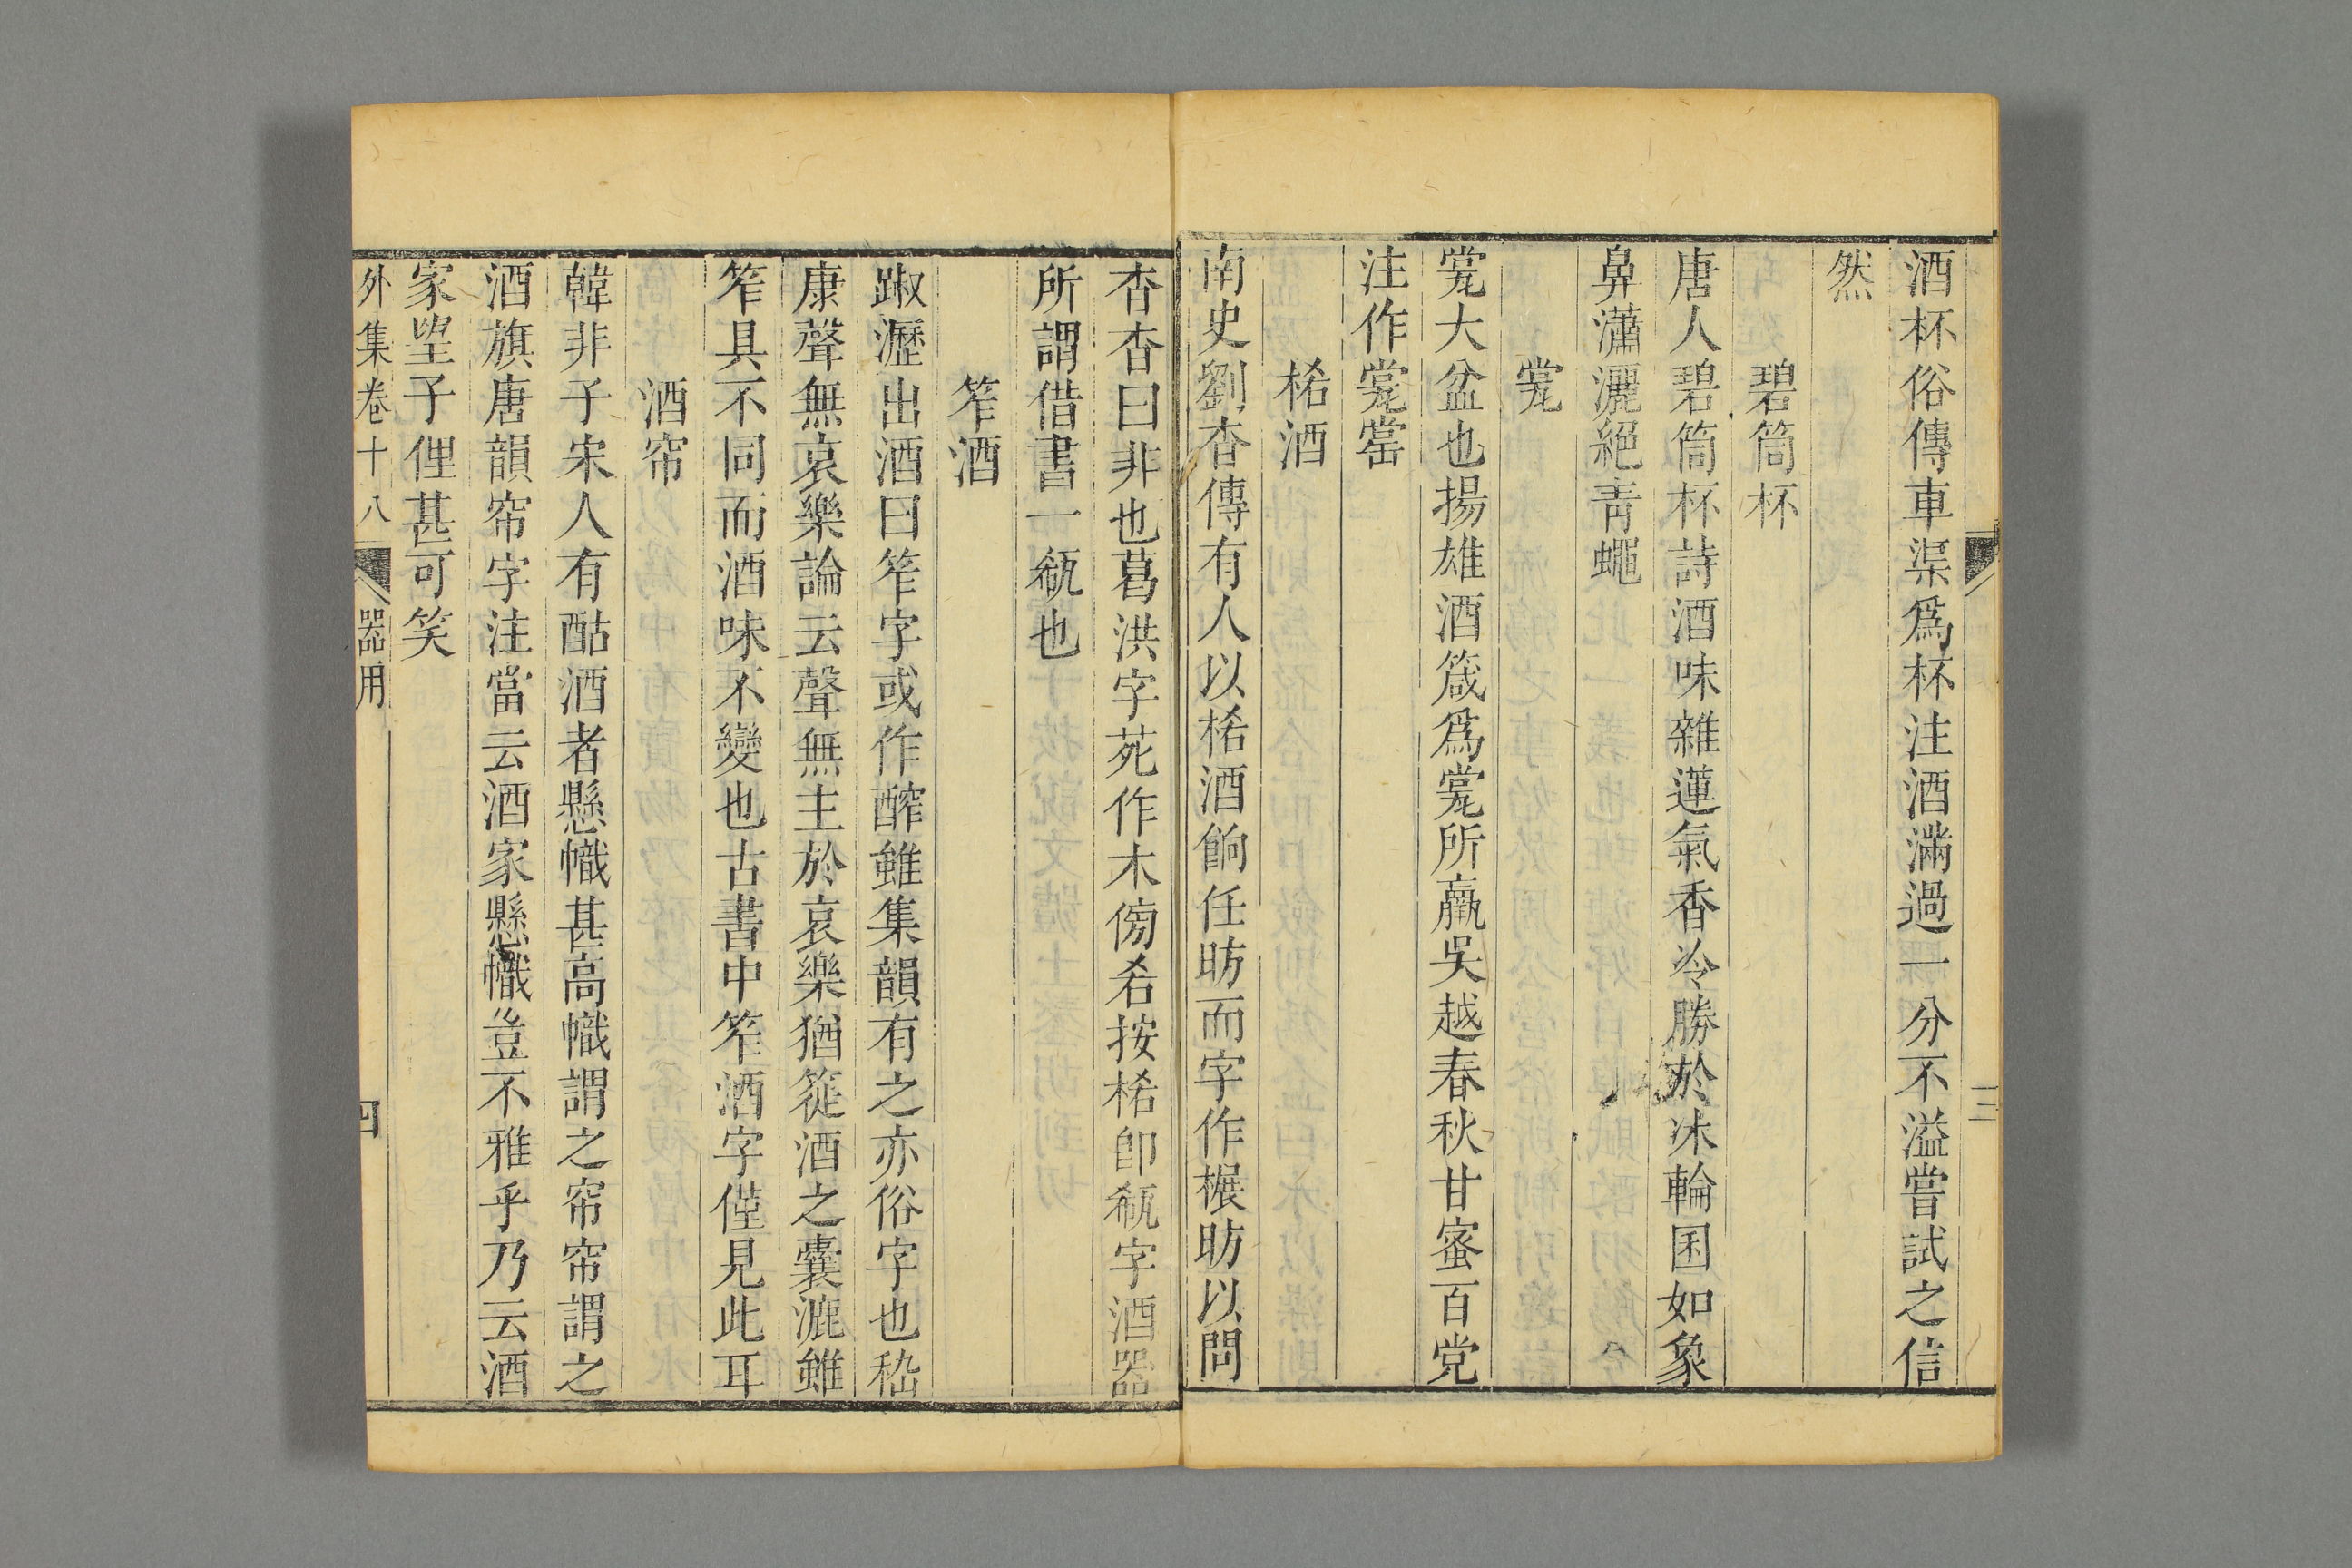 酒杯俗傳車渠爲杯注酒滿過一分不溢嘗試之信
然
碧筒杯
唐人碧筒杯詩酒味雜蓮氣香冷勝於冰輪囷如象
鼻瀟灑絕靑蠅
甍
甍大盆也揚雄酒箴爲甍所羸吳越春秋甘蜜百党
注作甍罃
桸酒
南史劉杳傳有人以桸酒餉任昉而字作榐昉以問
杳杳曰非也葛洪字苑作木傍㕛按桸卽瓻字酒器
所謂借書一瓻也
笮酒
踧瀝出酒曰笮字或作醡雖集韻有之亦俗字也嵇
康聲無哀樂論云聲無主於哀樂猶簁酒之囊漉雖
笮具不同而酒味不變也古書中笮酒字僅見此耳
酒帘
韓非子宋人有酤酒者懸幟甚高幟謂之帘帘謂之
酒旗唐韻帘字注當云酒家懸幟豈不雅乎乃云酒
家望子俚甚可笑
外集卷十八 器用 四
三